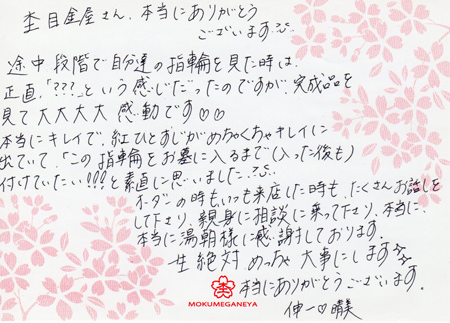 杢目金屋さん、本当にありがとう
ございます。
途中段階で自分達の指輪を見た時は、
正直、「???」という感じだったのですが、完成品を
見て大大大大感動です♡♡
本当にキレイで、紅ひとすじがめちゃくちゃキレイに
出ていて、「この指輪をお墓に入るまで(入った後も)
付けていたい!!!」と素直に思いました。
オーダーの時も、いつも来店した時も、たくさんお話しを
して下さり、親身に相談に乗って下さり、本当に、
本当に湯朝様に感謝しております。
一生絶対めっちゃ大事にします☆
本当にありがとうございます。
MOKUMEGANEYA
伸一♡晴美